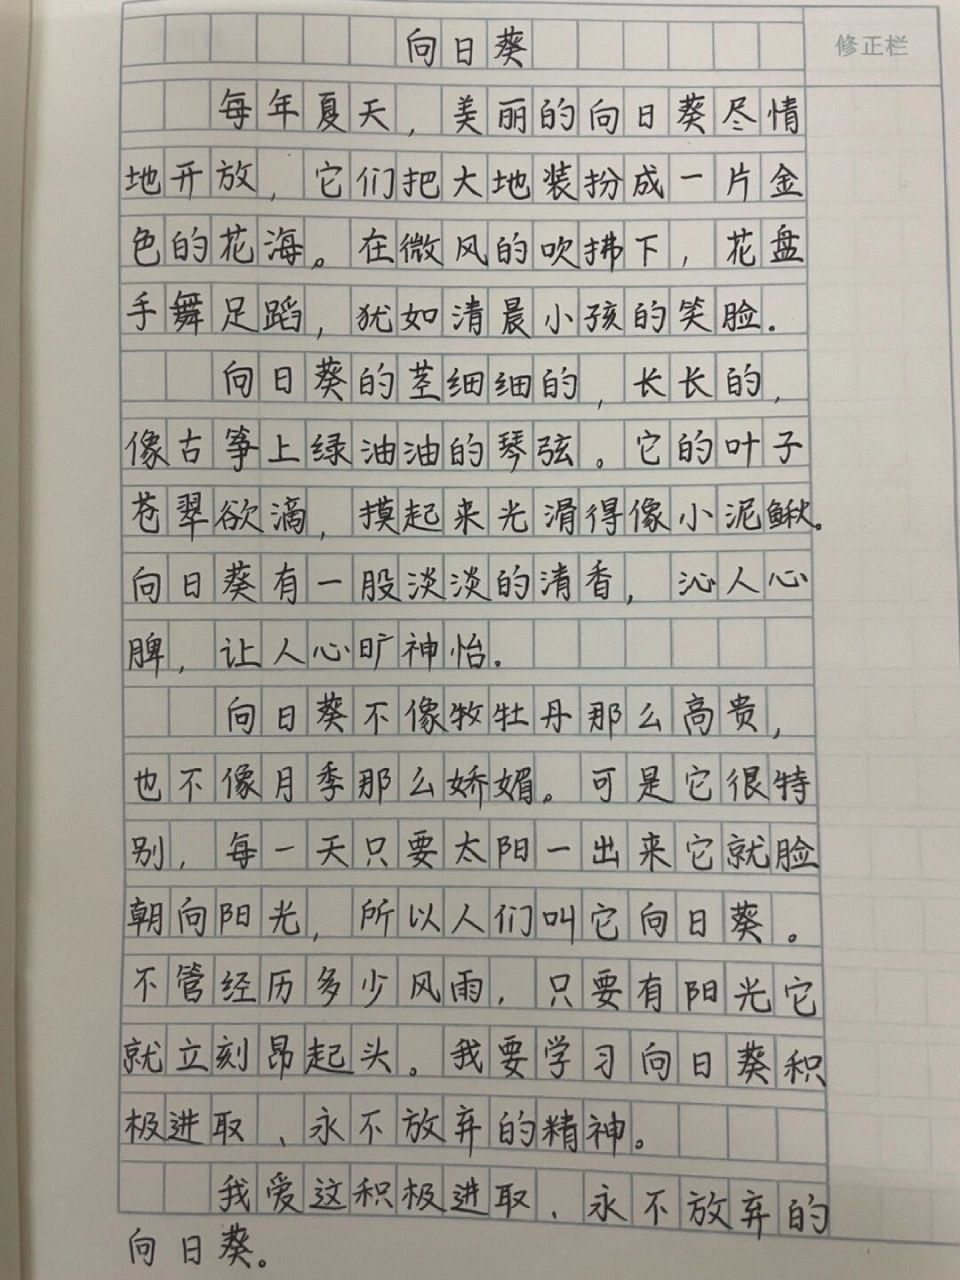 向日葵
修正栏
每年夏天，美丽的向日葵尽情
地开放，它们把大地装扮成一片金
色的花海。在微风的吹拂下，花盘
手舞足蹈，犹如清晨小孩的笑脸.
向日葵的茎细细的，长长的，
像古筝上绿油油的琴弦。它的叶子
苍翠欲滴，摸起来光滑得像小泥鳅。
向日葵有一股淡淡的清香，沁人心
脾，让人心旷神怡.
向日葵不像牧牡丹那么高贵，
也不像月季那么娇媚。可是它很特
别，每一天只要太阳一出来它就脸
朝向阳光，所以人们叫它向日葵。
不管经历多少风雨，只要有阳光它
就立刻昂起头。我要学习向日葵积
极进取、永不放弃的精神。
我爱这积极进取、永不放弃的
向日葵。